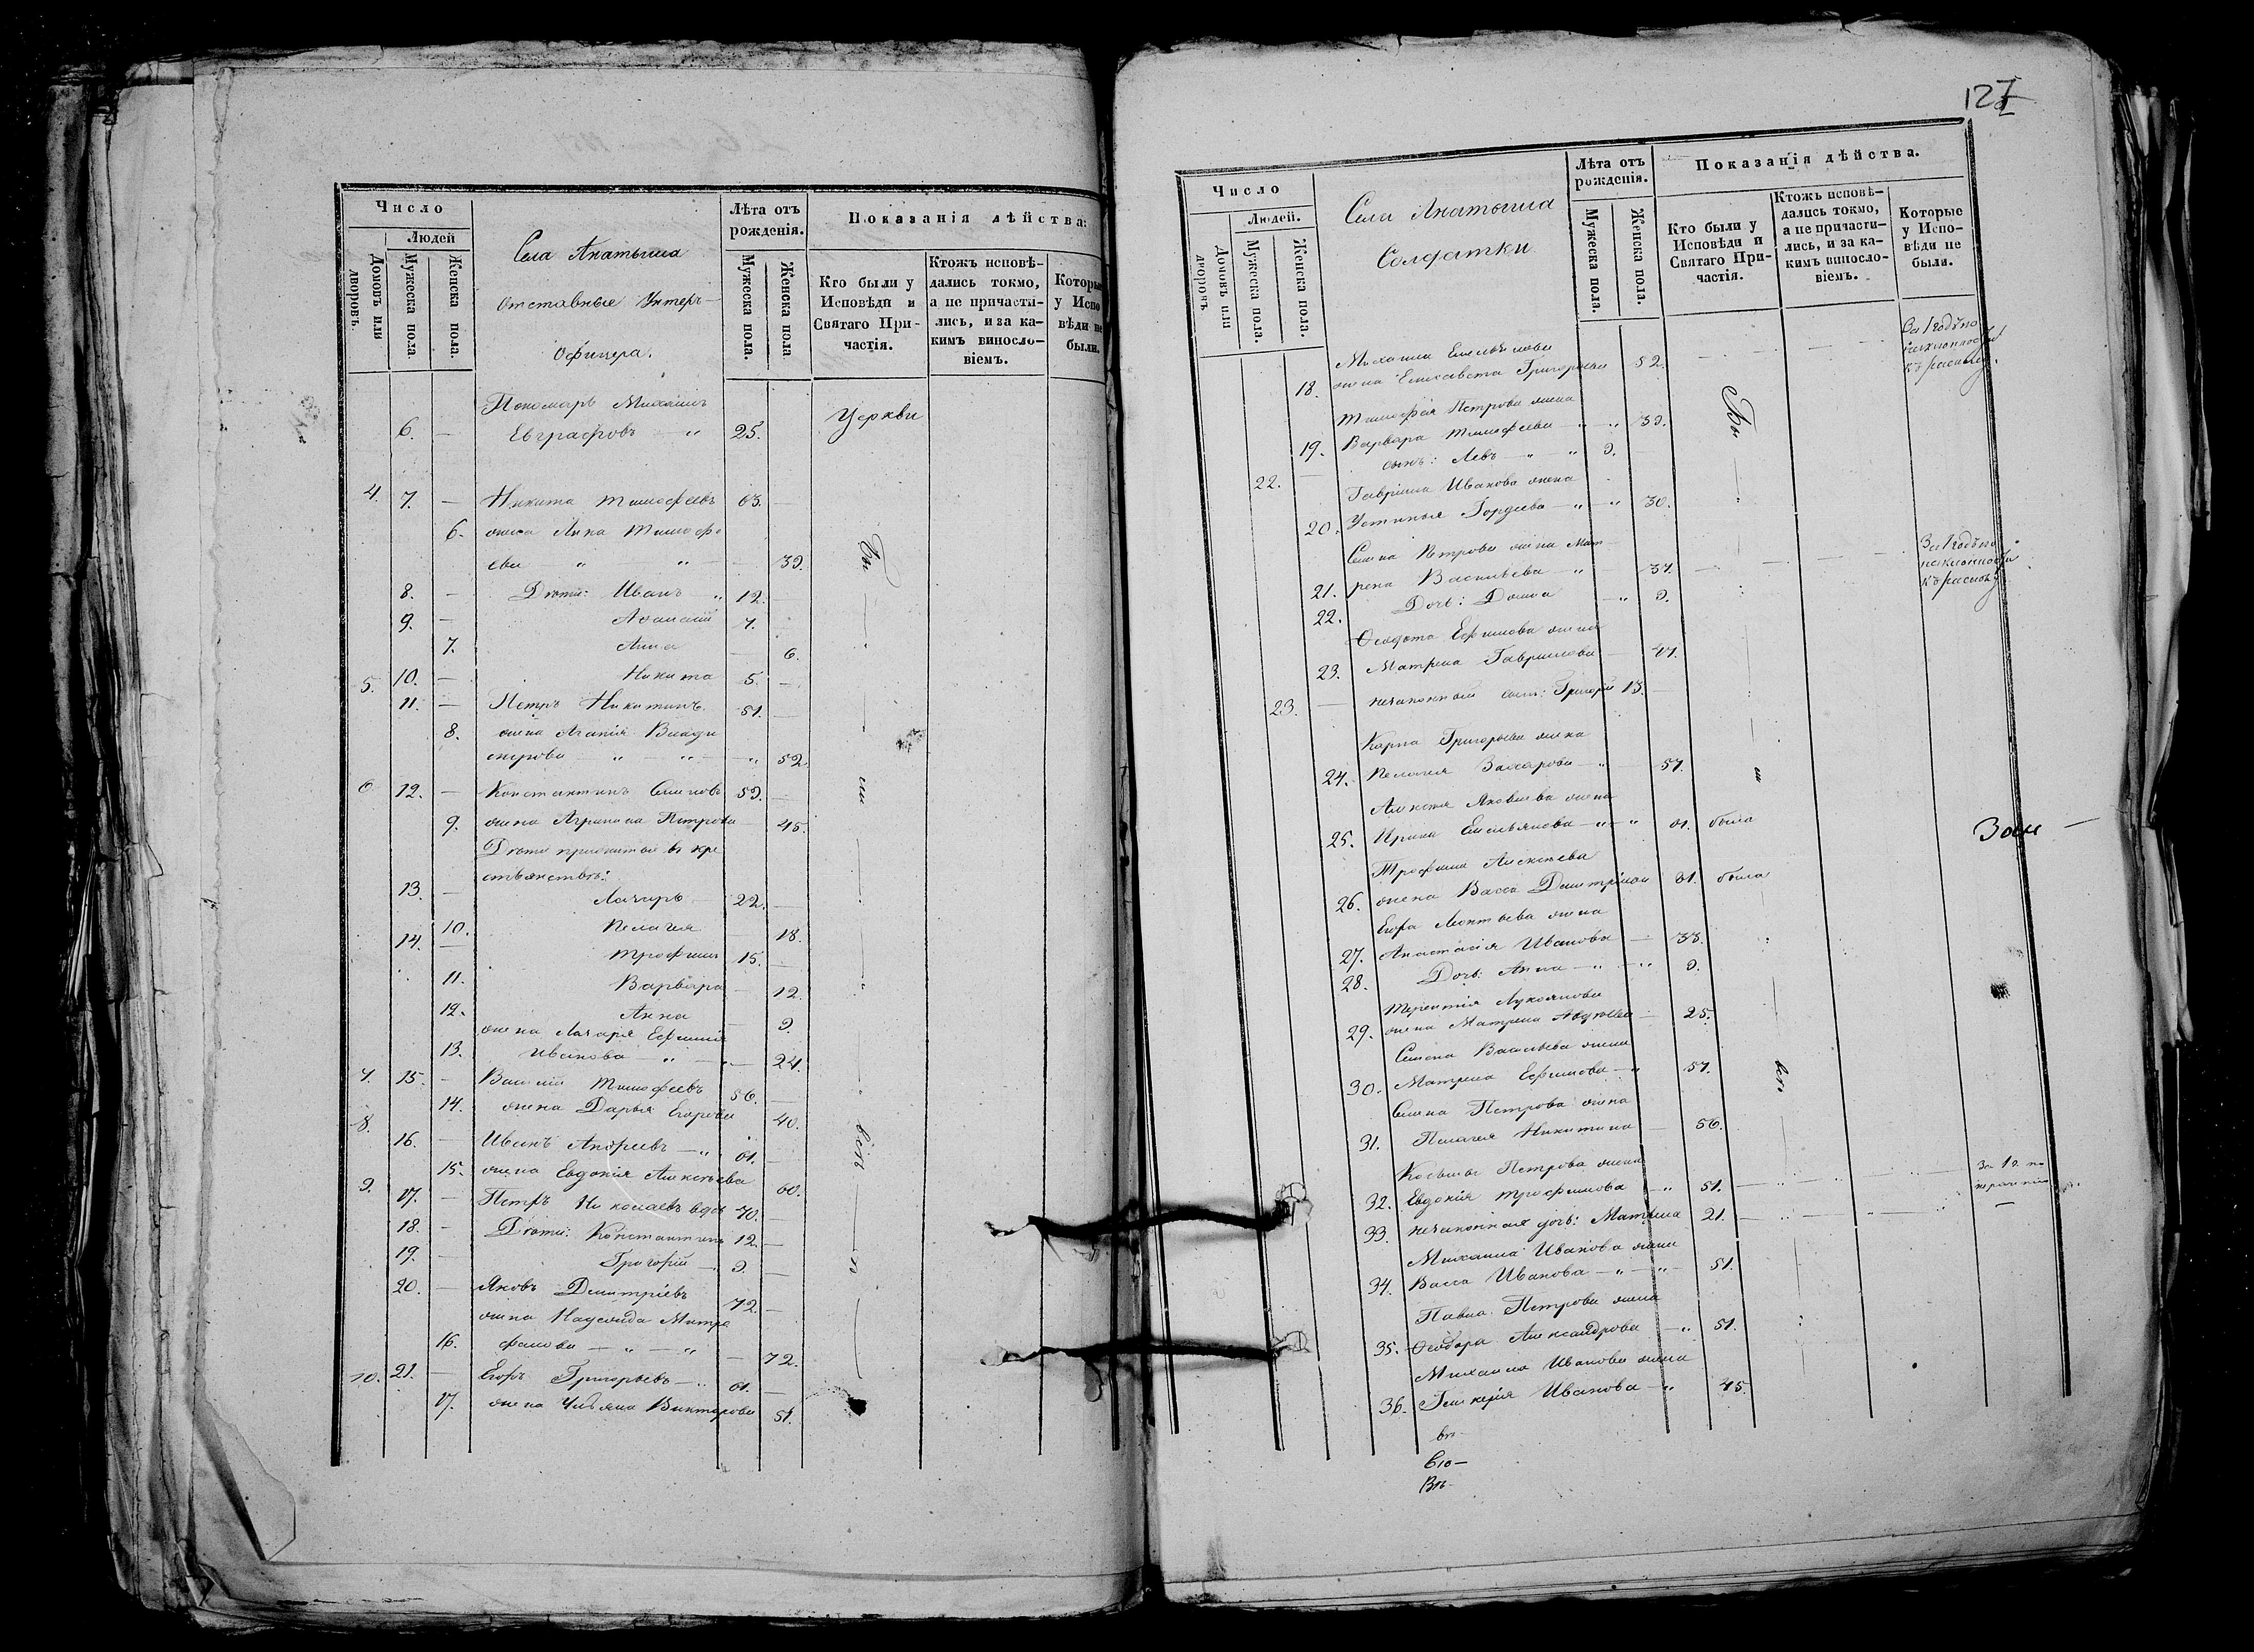 Число
Людей
Домовъ или дворовъ.
Мужеска пола.
Женска пола.
Села Анатыша
Отставные Унтеръ-
Офицера.
Лѣта отъ рожденія.
Мужеска пола.
Женска пола
Показанія дѣйства:
Кто были у Исповѣди и Святаго Причастія.
Ктожъ исповѣдались токмо, а не причастились, и за какимъ винословіемъ.
Которые у Исповѣди не были.
Пономарь Михаилъ
6. — Евграфовъ — „ 25. Церкви
4. 7. — Никита Тимофеевъ 63. —
6. жена Анна Тимофе
ева „ „ — 39. бы
8. — Дѣти: Иванъ — „ 12. —
9. — Афанасій 7.
7. Анна — 6.
10. — Никита 5. —
5. 11. — Петръ Никитинъ 51. —
8. жена Агапія
52.
6 12. — Константинъ Семеновъ 59. —
9. жена Агрипина Петрова — 45.
Дѣти прижитые въ кре
стьянствѣ:
13. — Лазарь — 22. —
10. Пелагея — 18.
14. — Трофимъ 15. —
11. Варвара — 12.
12. Анна — 9.
жена Лазаря Ефимія
13. Иванова — „ — 24.
7. 15. — Василій Тимофеевъ 56. —
14. жена Дарья Егорова 40.
8. 16. — Иванъ Андреевъ — „ 61. — всѣ
15. жена Евдокія Алексѣева 60.
9. 17. — Петръ Николаевъ вдов 70. —
18. — Дѣти: Константинъ 12. —
19. — Григорій — 9. —
20. — Яковъ Димитріевъ 72. —
жена
16. фанова — „ — „ — 72.
10. 21. — Егоръ Григорьевъ — „ 61. —
17. жена Викторова 51.
127
Число
Людей.
Домовъ или дворовъ
Мужеска пола
Женска пола.
Села Анатыша
Солдатки
Лѣта отъ рожденія.
Мужеска пола.
Женска пола.
Показанія дѣйства.
Кто были у Исповѣди и Святаго Причастія.
Ктожъ исповѣдались токмо, а не причастились, и за какимъ винословіемъ.
Которые у Исповѣди не были.
Михаила Емельянова
18. жена Елисавета Григорьева 52. За 1 годъ по склонности къ расколу.
Тимофея Петрова жена
19. Варвара Тимофеева — „ — „ 39. Бы
22. — сынъ: Левъ — „ — „ 9. —
Гавріила Иванова жена
20. Устинья Гордеева — „ — „ 30.
Семена Петрова жена Мат
21. рена Васильева — „ — 37. За 1 годъ по наклонности къ расколу
22. Дочь: Домна — „ 9.
Федота Ефимова жена
23. Матрена Гаврилова 47.
23. — незаконный сынъ: Григорій 13. —
Карпа Григорьева жена
24. Пелагея Захарова — „ 57.
Алексея Яковлева жена
25. Ирина Емельянова — „ — „ 61. была
Трофима Алексѣева
26. жена Васса Димитріева 81. была
Егора Леонтьева жена
27. Анастасія Иванова — 33.
28. Дочь: Анна — „ — „ 9.
Терентія Лукоянова
29. жена Матрена Авдѣева — 25.
Семена Васильева жена
30. Матрена Ефимова — „ 57. всѣ
Семена Петрова жена
31. Пелагея Никитина — 56.
Косьмы Петрова жена
32. Евдокія Трофимова — „ 51. — За 1 г. по
33. незаконная дочь: Матрена 21. —
Михаила Иванова жена
34. Васса Иванова — „ — „ — 51.
Павла Петрова жена
35. Феодора Александрова — „ 51.
Михаила Иванова жена
36. Гликерія Иванова — „ 45.